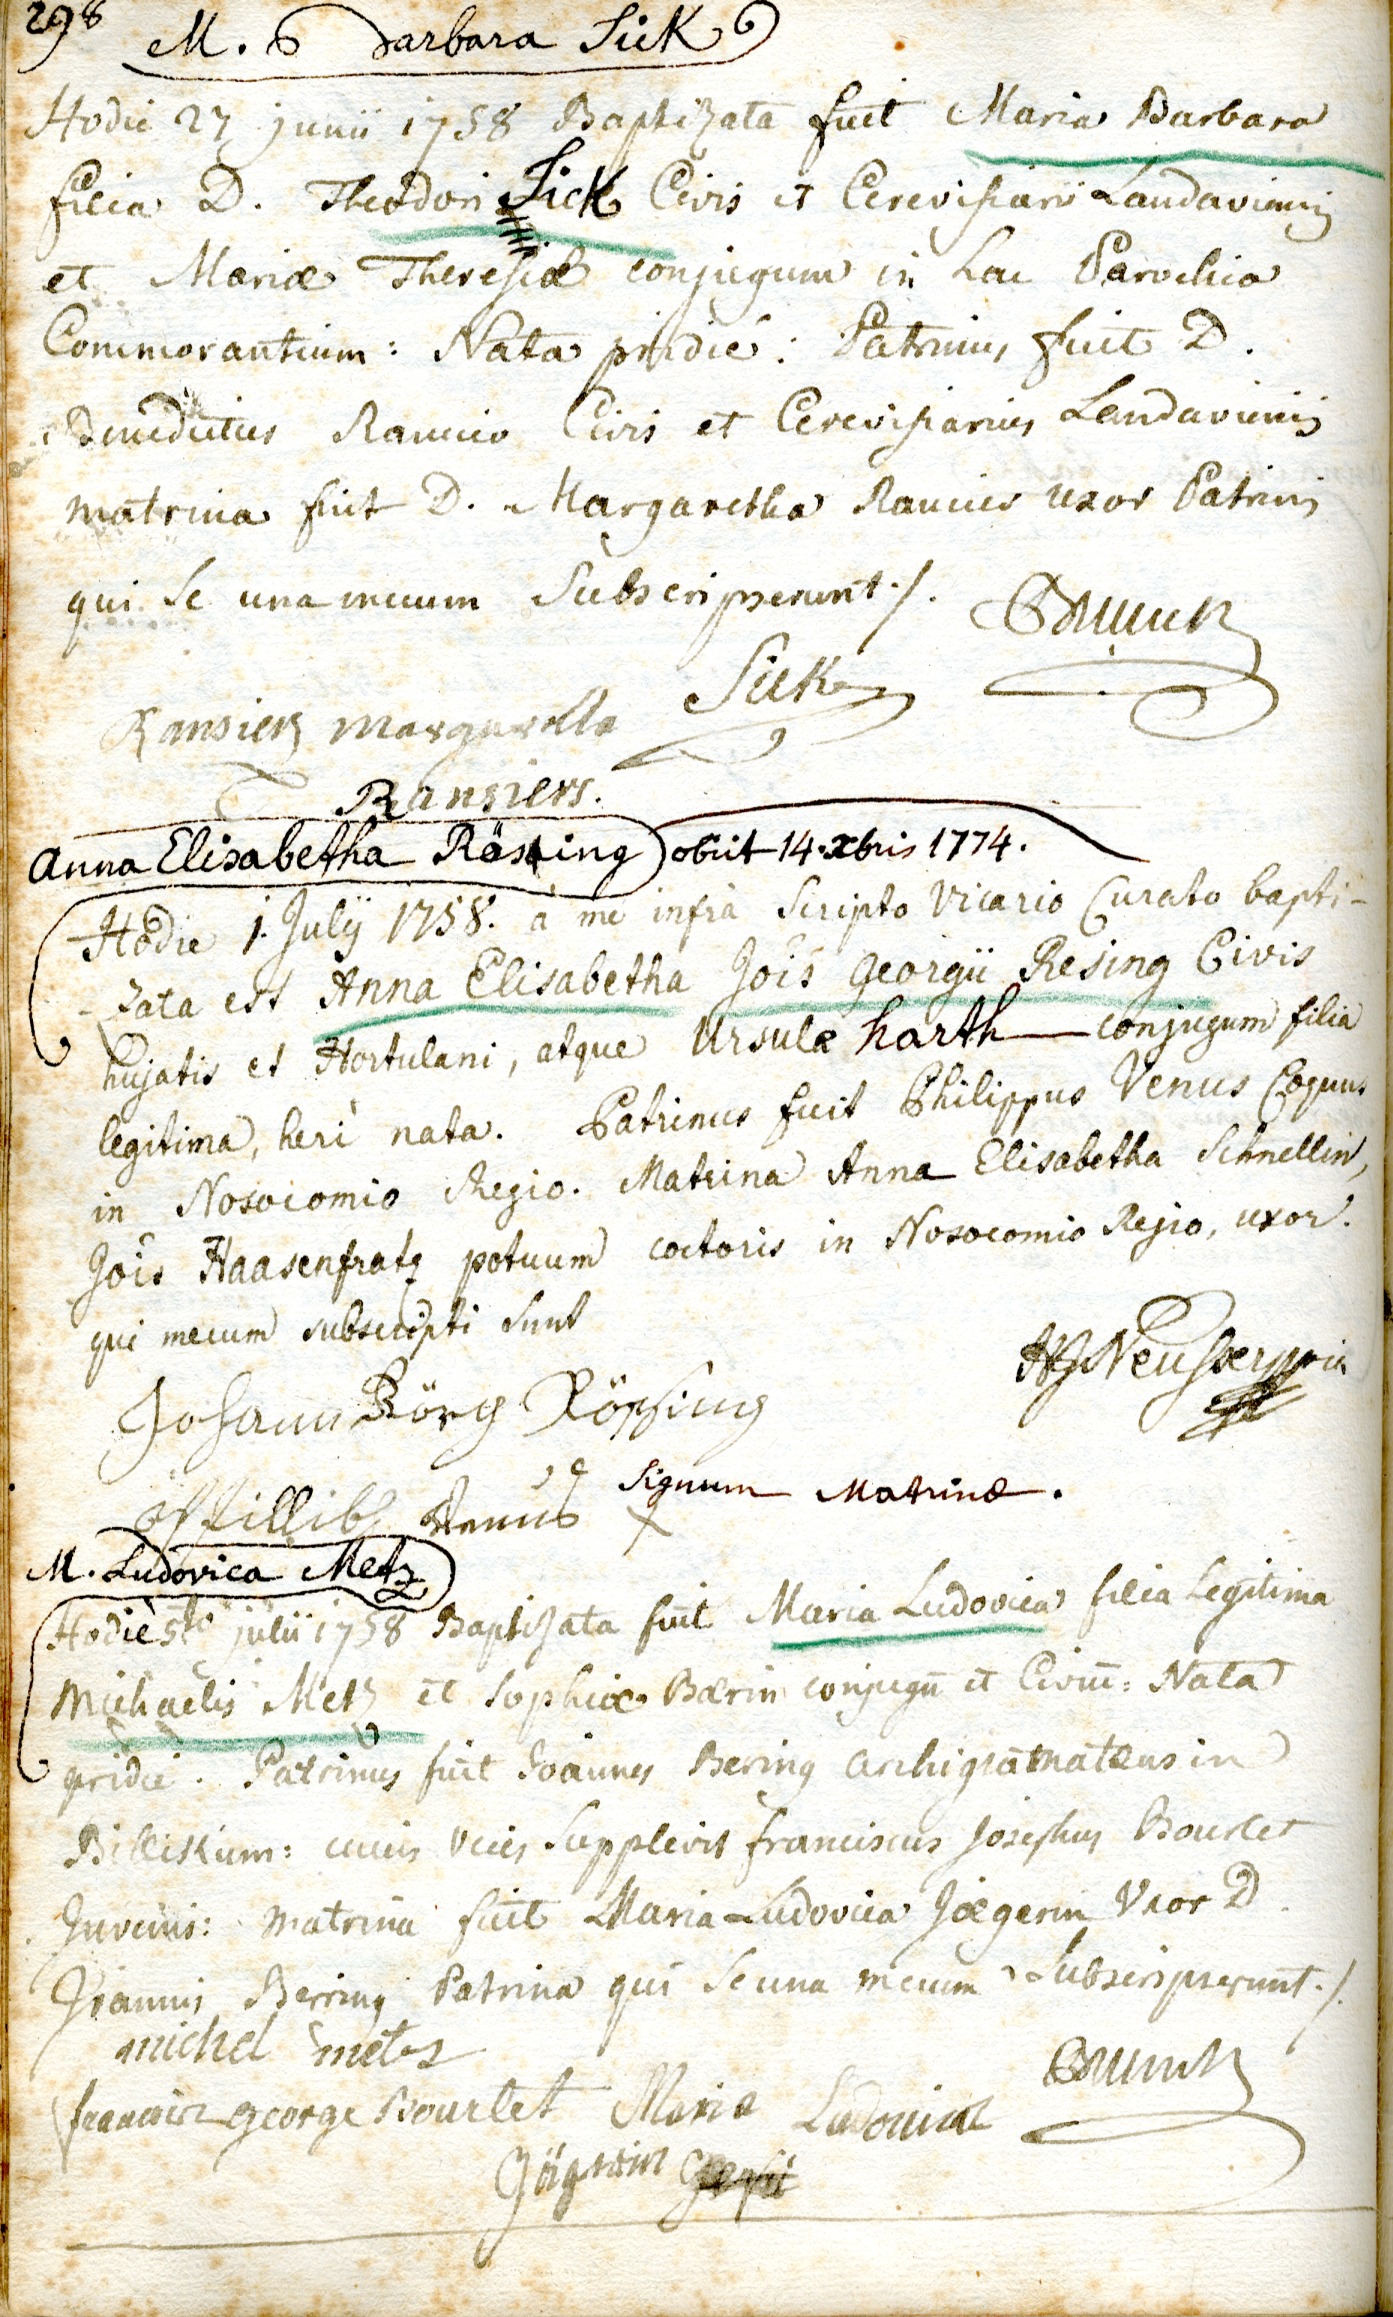 298
M. Barbara Sick
Hodie 27 junii 1758 Baptizata fuit Maria Barbara
filia D. Theodori Sick Civis et Cerevisiarii Landaviensis
et Mariæ Theresiæ conjugum in hac Parochia
Commorantium: Nata pridie: Patrinus fuit D.
Benedictus Civis et Cerevisiarius Landaviensis
matrina fuit D. Margaretha uxor Patrini
qui se una mecum Subscripserunt ./.
Sick
Ransier margaretha
Ransiers.
Anna Elisabetha Rösing obiit 14. Xbris 1774.
Hodie 1. Julÿ 1758. à me infrà Scripto Vicario Curato bapti-
-zata est Anna Elisabetha Jois Georgii Resing Civis
hujatis et Hortulani, atque Ursulæ harth conjugum filia
legitima, heri nata. Patrinus fuit Philippus Venus Coquus
in Nosocomio Regio. Matrina Anna Elisabetha Schnellin,
Jois Haasenfratz potuum coctoris in Nosocomio Regio, uxor.
qui mecum subscripti sunt
Johann Görg Rössing
Signum Matrinæ.
M. Ludovica Metz
Hodie 5te julii 1758 Baptizata fuit Maria Ludovica filia Legitima
Michaelis Metz et Sophiæ Bærin conjugū et Civiū: Nata
pridie. Patrinus fuit Joannes Bering archigrāmatæus in
Billikum: cuius vices Supplevit franciscus josephus Bourlet
Juvenis: matrina fuit Maria Ludovica Jægerin Uxor D.
Joannis Berring Patrina qui se una mecum Subscripserunt ./.
michel metz
francois george Bourlet Maria Ludovica
Jägerin